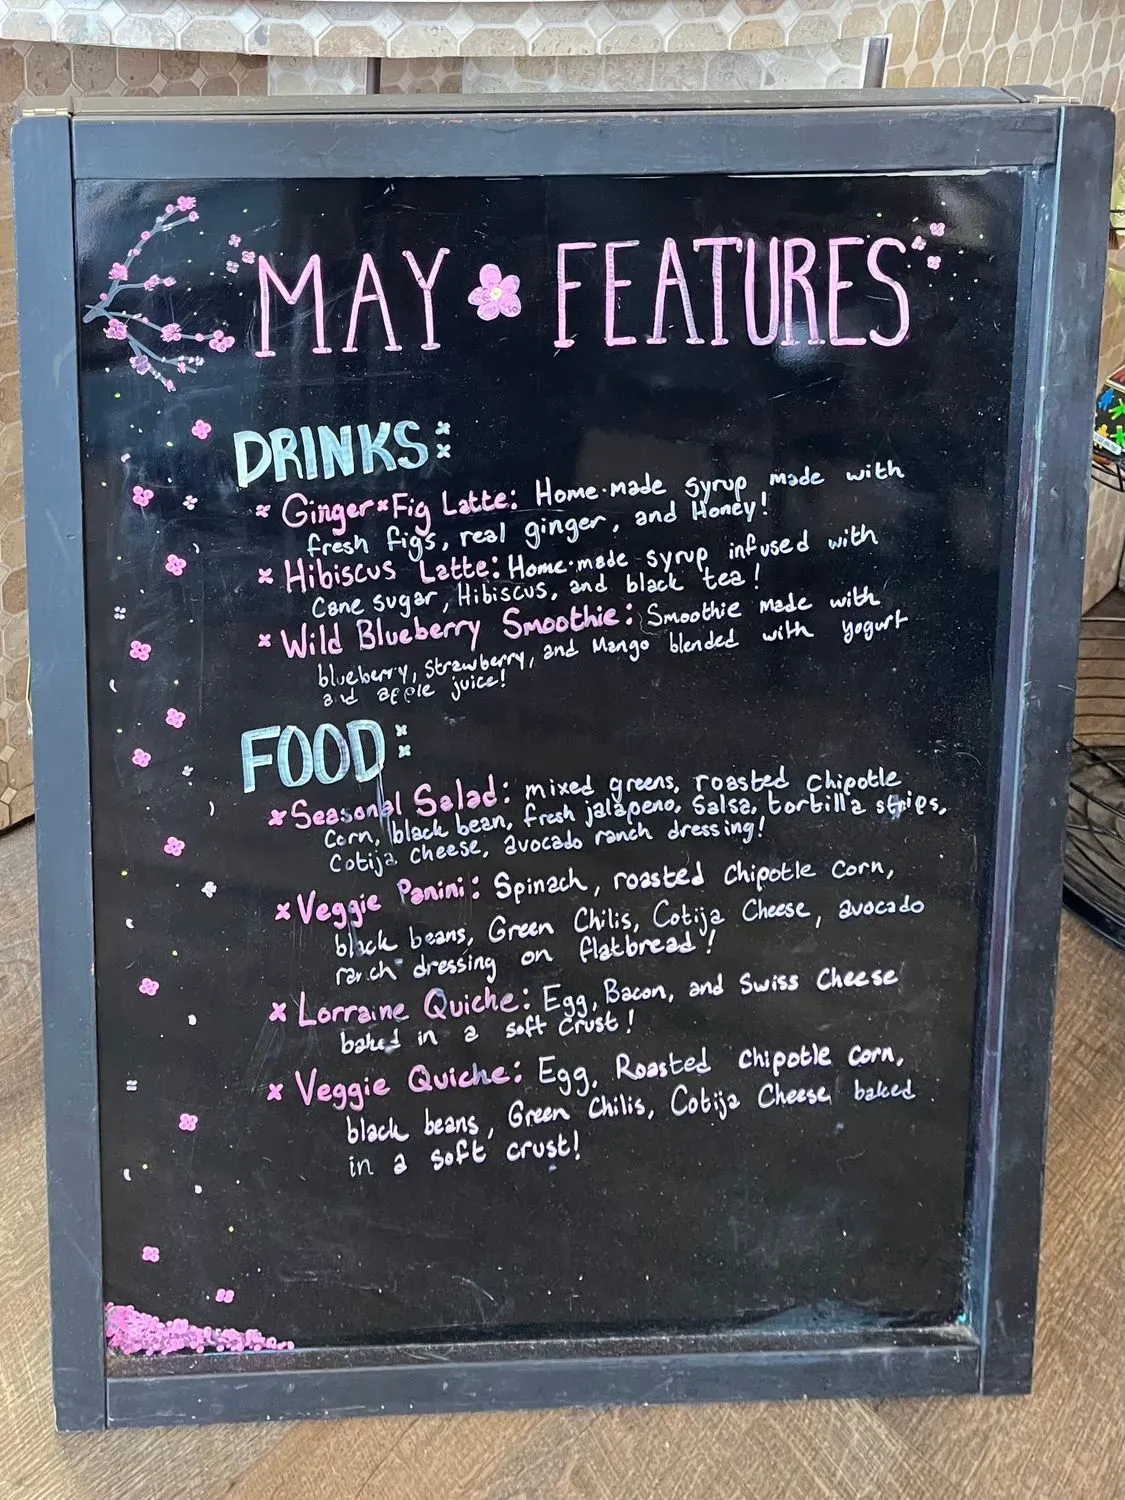 MAY FEATURES
DRINKS:
Ginger × Fig Latte: Home-made syrup made with
fresh figs, real ginger, and Honey!
Hibiscus Latte: Home-made syrup infused with
Cane sugar, Hibiscus, and black tea!
Wild Blueberry Smoothie: Smoothie made with
blueberry, strawberry, and Mango blended with yogurt
and apple juice!
FOOD:
Seasonal Salad: mixed greens, roasted Chipotle
Corn, black bean, fresh jalapeno, Salsa, tortilla strips,
Cotija cheese, avocado ranch dressing!
Veggie Panini: Spinach, roasted Chipotle Corn,
black beans, Green Chilis, Cotija Cheese, avocado
ranch dressing on flatbread!
Lorraine Quiche: Egg, Bacon, and Swiss Cheese
baked in a soft crust!
Veggie Quiche: Egg, Roasted Chipotle Corn,
black beans, Green Chilis, Cotija Cheese baked
in a soft crust!